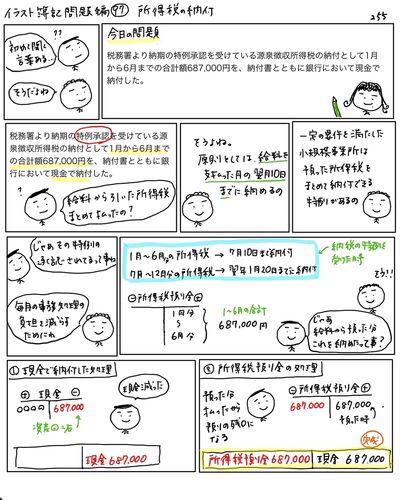 イラスト簿記問題編97 所得税の納付
255
初めて聞く
言葉ある…
そうだよね
今日の問題
税務署より納期の特例承認を受けている源泉徴収所得税の納付として1月
から6月までの合計額687,000円を、納付書とともに銀行において現金で
納付した。
税務署より納期の特例承認を受けている源
泉徴収所得税の納付として1月から6月まで
の合計額687,000円を、納付書とともに銀
行において現金で納付した。
給料から引いた所得税
まとめて払ったの?
そうよね。
原則としては、給料を
支払った月の翌月10日
までに納めるの
一定の条件を満たした
小規模事業所は
預った所得税を
まとめて納付できる
特例があるの
じゃあその特例の
承認されてるって事ね
毎月の事務処理の
負担を減らす
ためにね
1月〜6月分の所得税 → 7月10日まで納付
7月〜12月分の所得税 → 翌年1月20日までに納付
納税の特例を
受けた時
⊖所得税預り金⊕
1月分
6月分
1〜6月の合計
687,000円
そう!!
じゃあ
給料から預った分
これを納めたって事?
①現金で納付した処理
⊕ 現金 ⊖
0000
687,000
資産の⊖は右
現金減った
現金 687,000
②所得税預り金の処理
預った分
払ったから
預りの残0に
なる
⊖ 所得税預り金 ⊕
687,000
687,000
預った時
完成
所得税預り金 687,000
現金 687,000